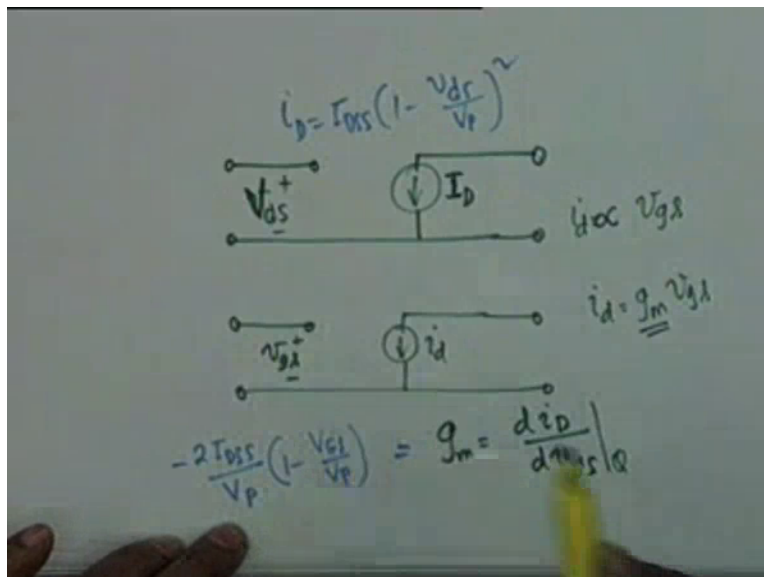 i_D = I_DSS (1 - V_ds/V_P)^2
V_ds + -
I_D
i_d ∝ v_gs
v_gs + -
i_d
i_d = g_m v_gs
-2I_DSS/V_P (1 - V_GS/V_P) = g_m = di_D/dv_GS |_Q